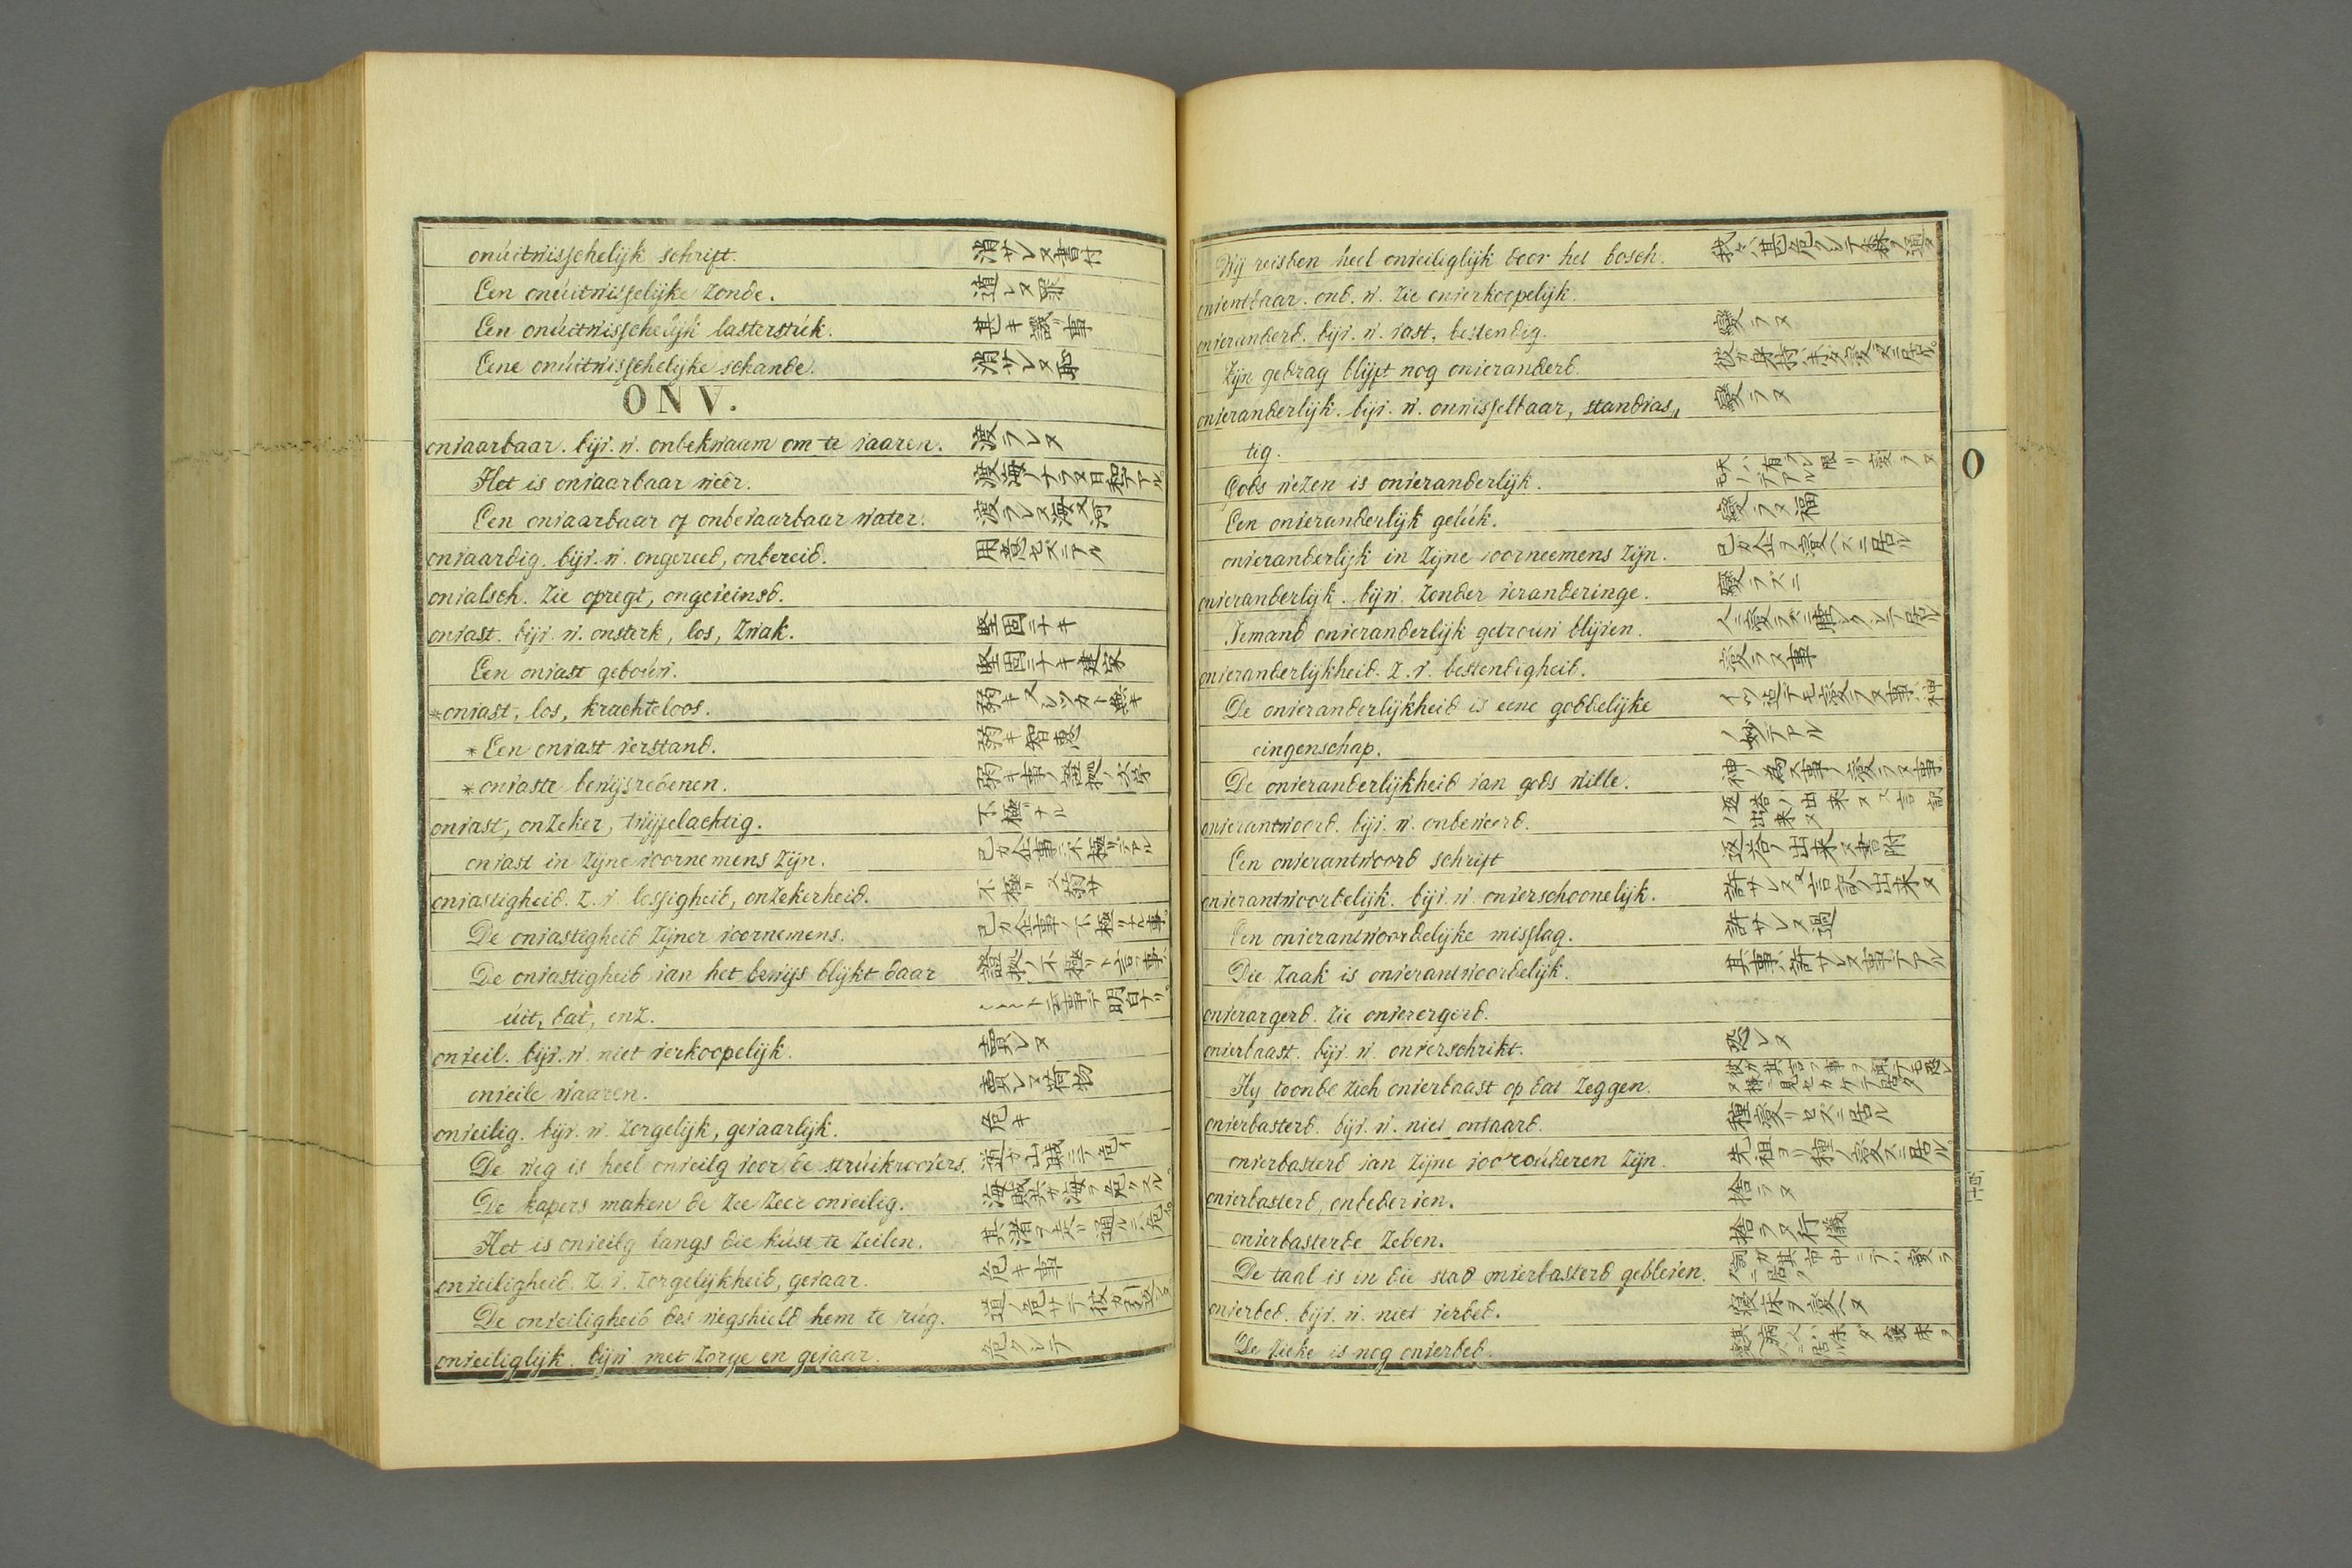 onuitwisschelijk schrift. 消サレヌ書付
Een onuitwisselijke zonde. 遁レヌ罪
Een onuitwisschelijk lasterstuk. 甚キ譏事
Eene onuitwisschelijke schande. 消サレヌ耻
ONV.
onvaarbaar. bijv. w. onbekwaam om te vaaren. 渡ラレヌ
Het is onvaarbaar wêer. 渡海ノナラヌ日和デアル
Een onvaarbaar of onbevaarbaar water. 渡ラレヌ海又河
onvaardig. bijv. w. ongereed, onbereid. 用意セズニアル
onvalsch. Zie opregt, ongeveinsd.
onvast. bijv. w. onsterk, los, zwak. 堅固ニナキ
Een onvast gebouw. 堅固ニナキ建家
*onvast, los, krachteloos.
*Een onvast verstand. 弱キ智恵
*onvaste bewijsredenen.
onvast, onzeker, twijfelachtig. 不極ナル
onvast in zijne voornemens zijn.
onvastigheid. z. v. lossigheid, onzekerheid.
De onvastigheid zijner voornemens.
De onvastigheid van het bewijs blijkt daar
uit, dat, enz.
onveil. bijv. w. niet verkoopelijk. 賣レヌ
onveile waaren. 賣レヌ荷物
onveilig. bijv. w. zorgelijk, gevaarlijk. 危キ
De weg is heel onveilg voor de struikroovers.
De kapers maken de zee zeer onveilig.
Het is onveilg langs die kust te zeilen.
onveiligheid. z. v. zorgelijkheid, gevaar. 危キ事
De onveiligheid des wegshield hem te rug.
onveiliglijk. bijw. met zorge en gevaar. 危クシテ
Wij reisden heel onveiliglijk door het bosch.
onventbaar. ond. w. zie onverkoopelijk.
onveranderd. bijv. w. vast, bestendig. 變ラヌ
Zijn gedrag blijft nog onveranderd.
onveranderlijk. bijv. w. onwisselbaar, standvas„ 變ラヌ
tig.
Gods wezen is onveranderlijk.
Een onveranderlijk geluk. 變ラヌ福
onveranderlijk in zijne voorneemens zijn. 己ガ企ヲ變ヘズニ居ル
onveranderlijk. bijw. zonder veranderinge. 變ラズニ
Iemand onveranderlijk getrouw blijven.
onveranderlijkheid. z. v. bestendigheid. 變ラヌ事
De onveranderlijkheid is eene goddelijke
eingenschap. ノ妙デアル
De onveranderlijkheid van gods wille. 神ノ為ス事ノ變ラヌ事
onverantwoord. bijv. w. onbeweerd.
Een onverantwoord schrift 返答ノ出来ヌ書附
onverantwoordelijk. bijv. w. onverschoonelijk. 許サレヌ又言訳ノ出来ヌ
Een onverantwoordelijke misslag. 許サレヌ過
Die zaak is onverantwoordelijk. 其事ハ許サレヌ事デアル
onverargerd. Zie onverergerd.
onverbaast. bijv. w. onverschrikt. 恐レヌ
Hy toonde zich onverbaast op dat zeggen.
onverbasterd. bijv. w. niet ontaard. 種變リセズニ居ル
onverbasterd van zijne voorouderen zijn. 先祖ヨリ種ノ變ズニ居ル
onverbasterd, onbedorven. 捨ラヌ
onverbasterde zeden. 捨ラヌ行儀
De taal is in die stad onverbasterd gebleven.
onverbed. bijv. w. niet verbed. 寝床ヲ變ヘヌ
De zieke is nog onverbed.
O